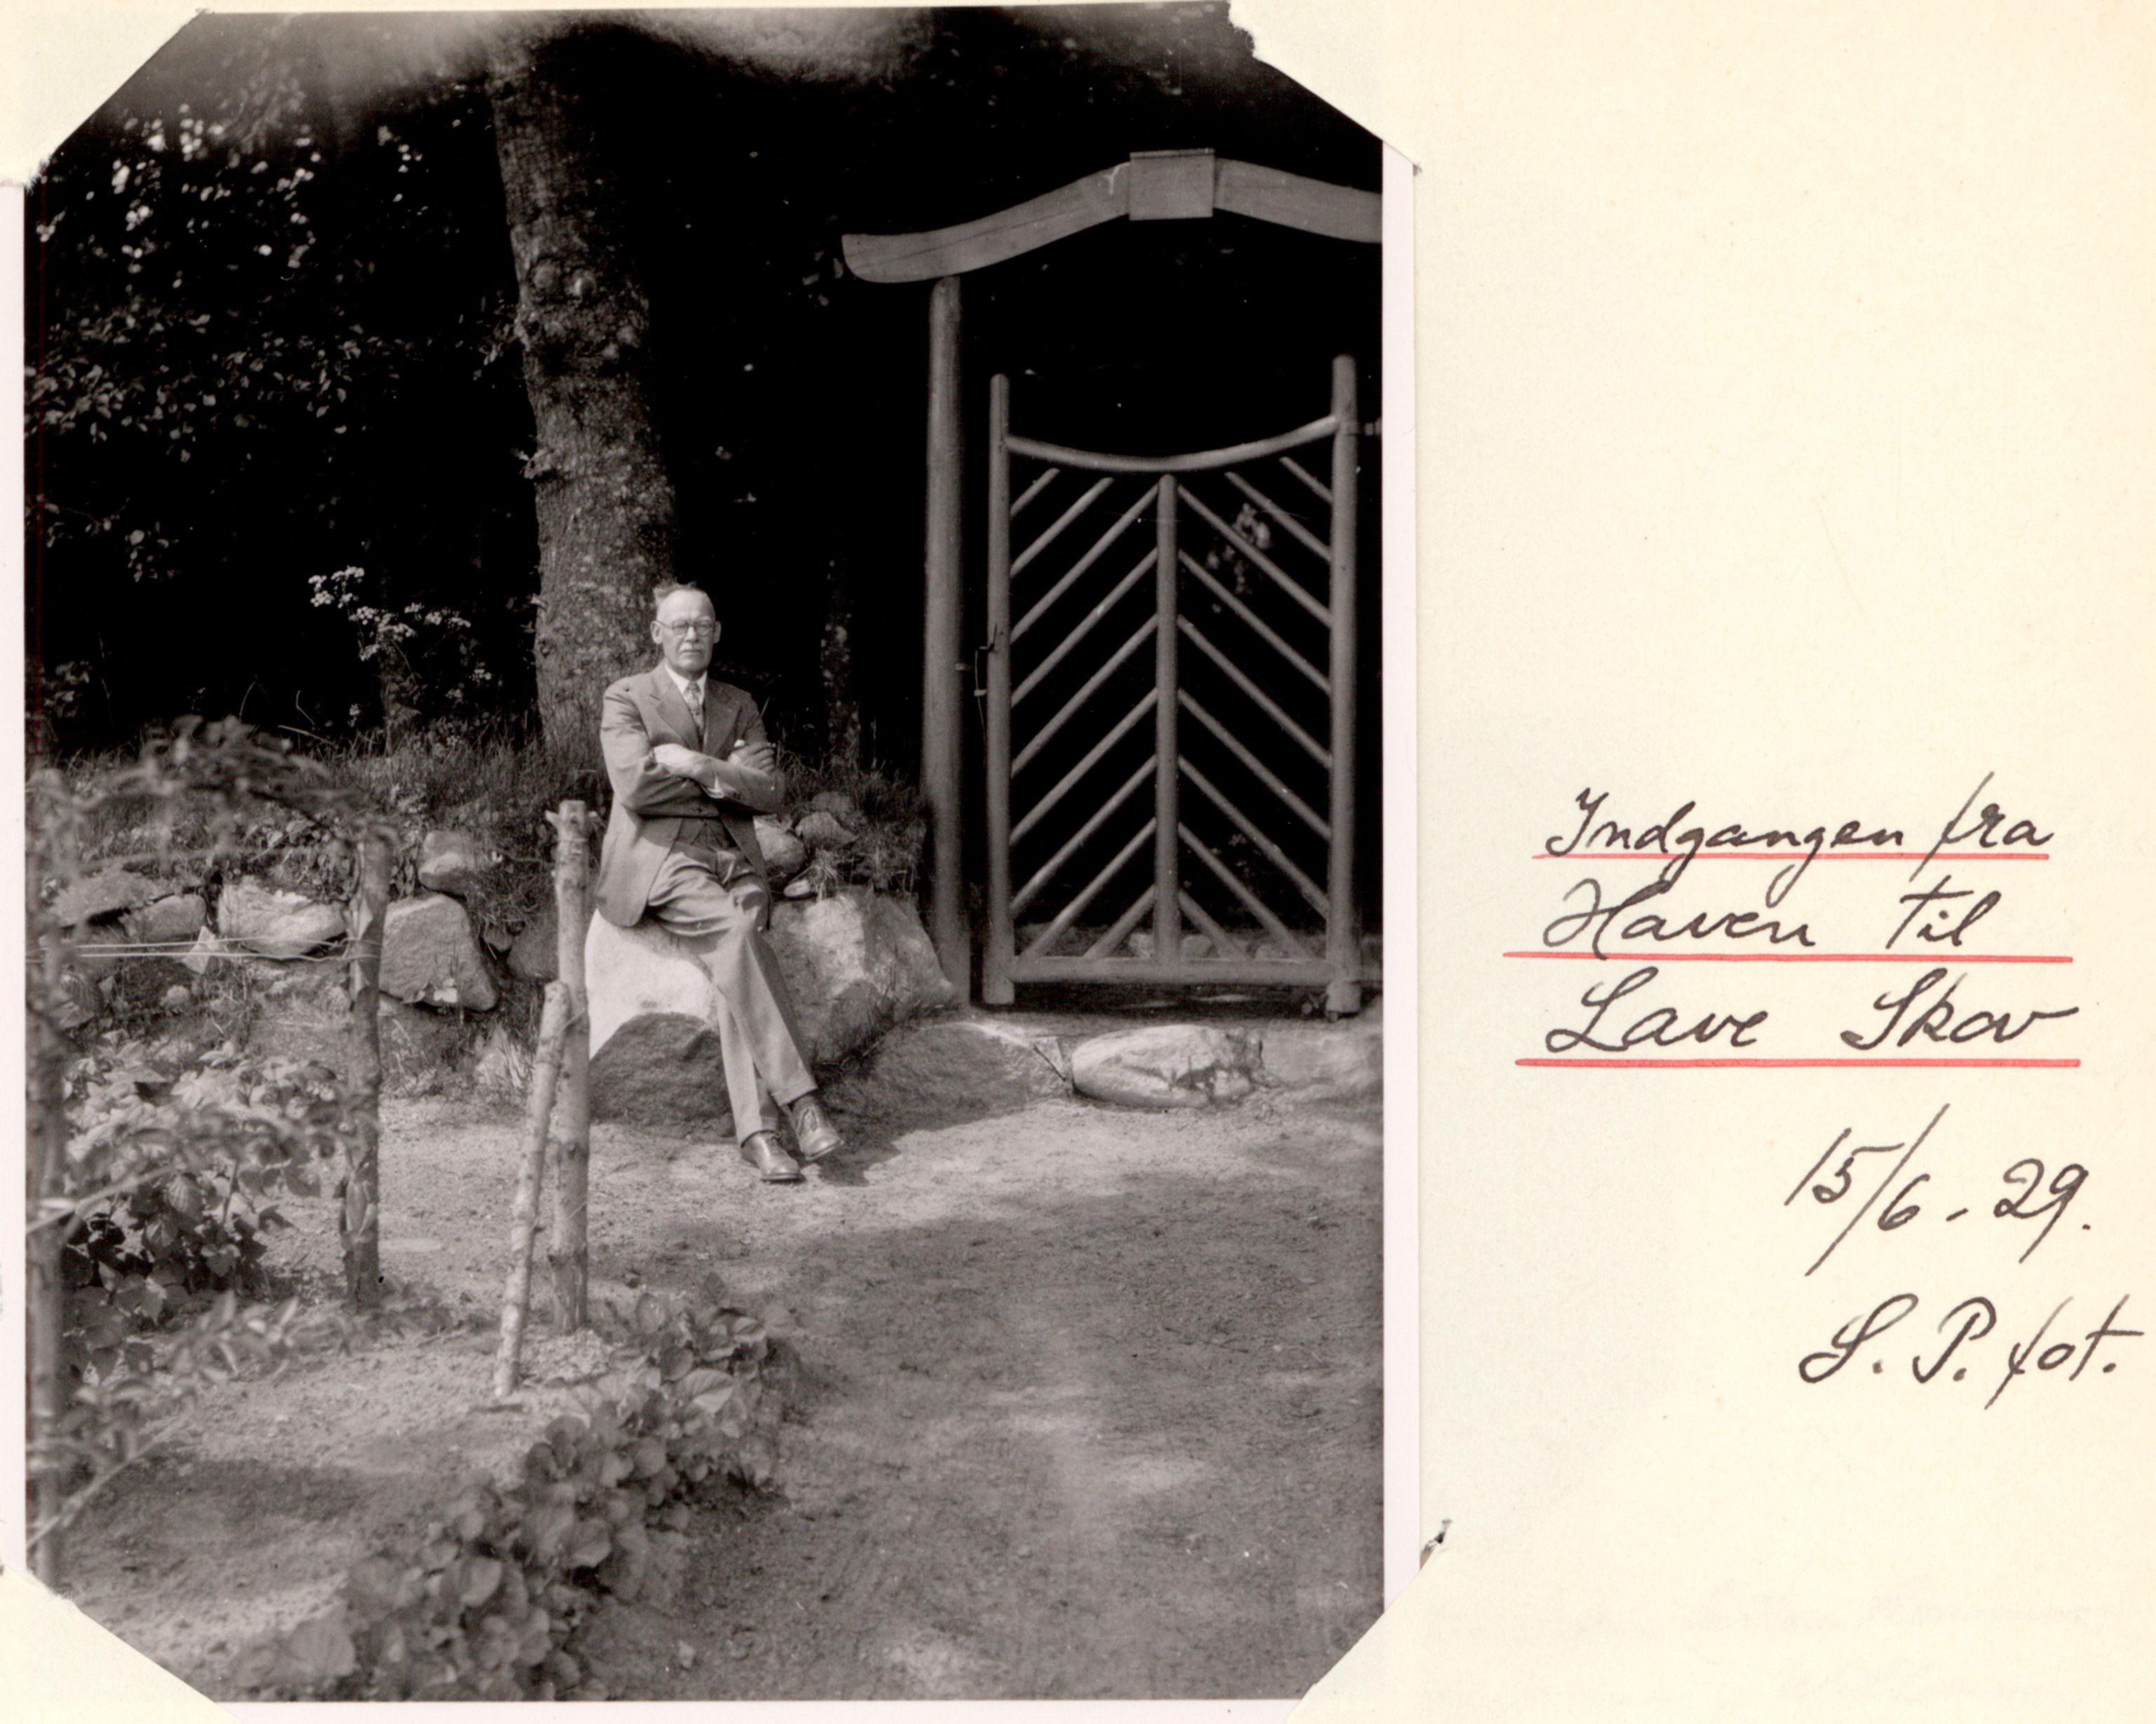 Indgangen fra
Haven til
Lave Skov
15/6 - 29.
S. P. fot.